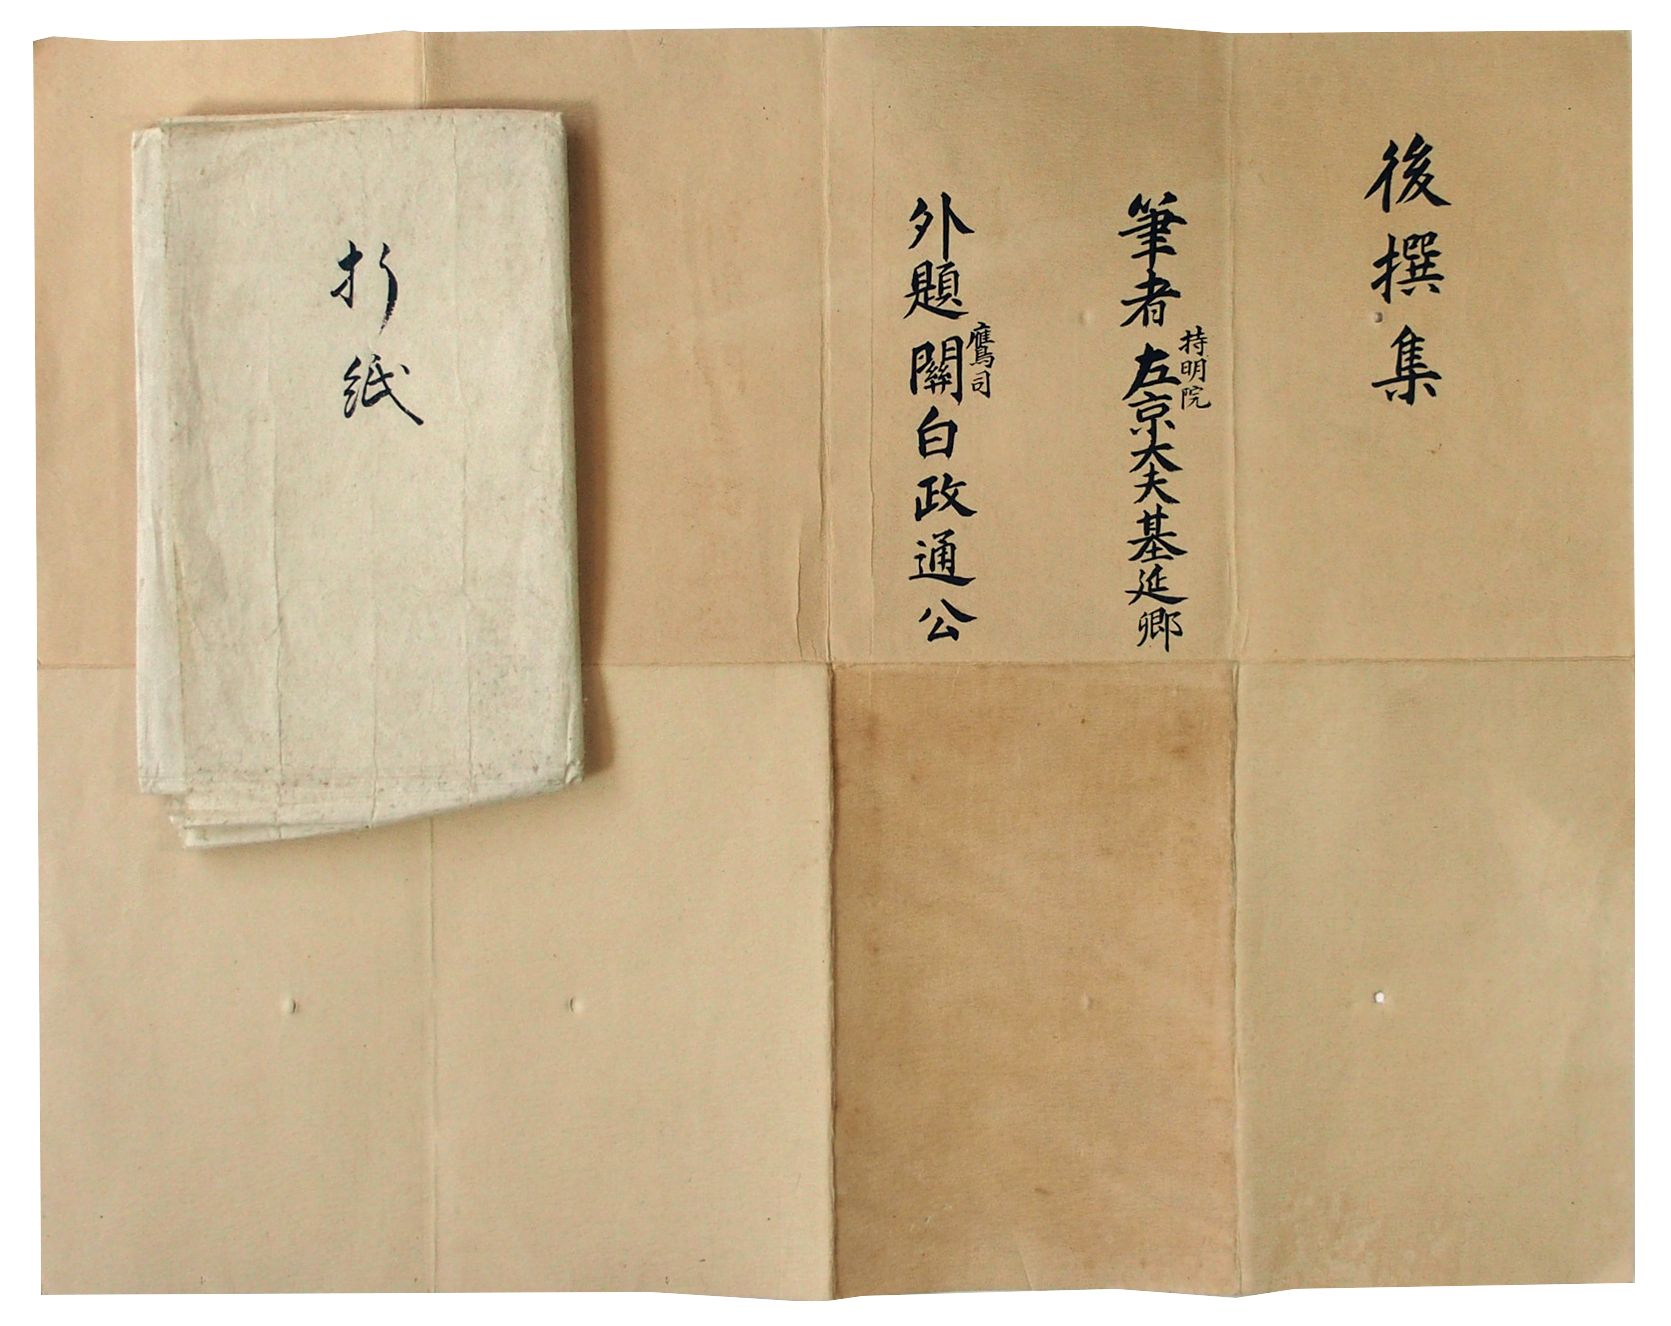 後撰集
筆者 持明院 左京大夫基延卿
外題 鷹司 關白政通公
折紙